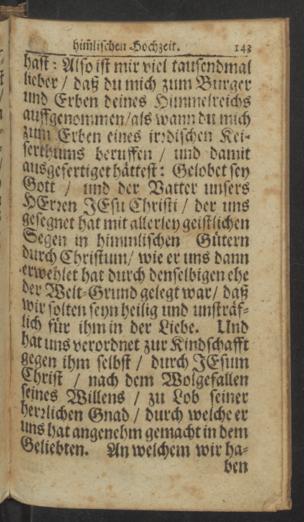 him̃lischen Hochzeit. 143
hast: Also ist mir viel tausendmal
lieber / daß du mich zum Burger
und Erben deines Himmelreichs
auffgenommen / als wann du mich
zum Erben eines irrdischen Kei-
serthums beruffen / und damit
ausgefertiget hättest: Gelobet sey
Gott / und der Vatter unsers
HErren JEsu Christi / der uns
gesegnet hat mit allerley geistlichen
Segen in himmlischen Gütern
durch Christum / wie er uns dann
erwehlet hat durch denselbigen ehe
der Welt-Grund gelegt war / daß
wir solten seyn heilig und unsträf-
lich für ihm in der Liebe. Und
hat uns verordnet zur Kindschafft
gegen ihm selbst / durch JEsum
Christ / nach dem Wolgefallen
seines Willens / zu Lob seiner
herzlichen Gnad / durch welche er
uns hat angenehm gemacht in dem
Geliebten. An welchem wir ha-
ben